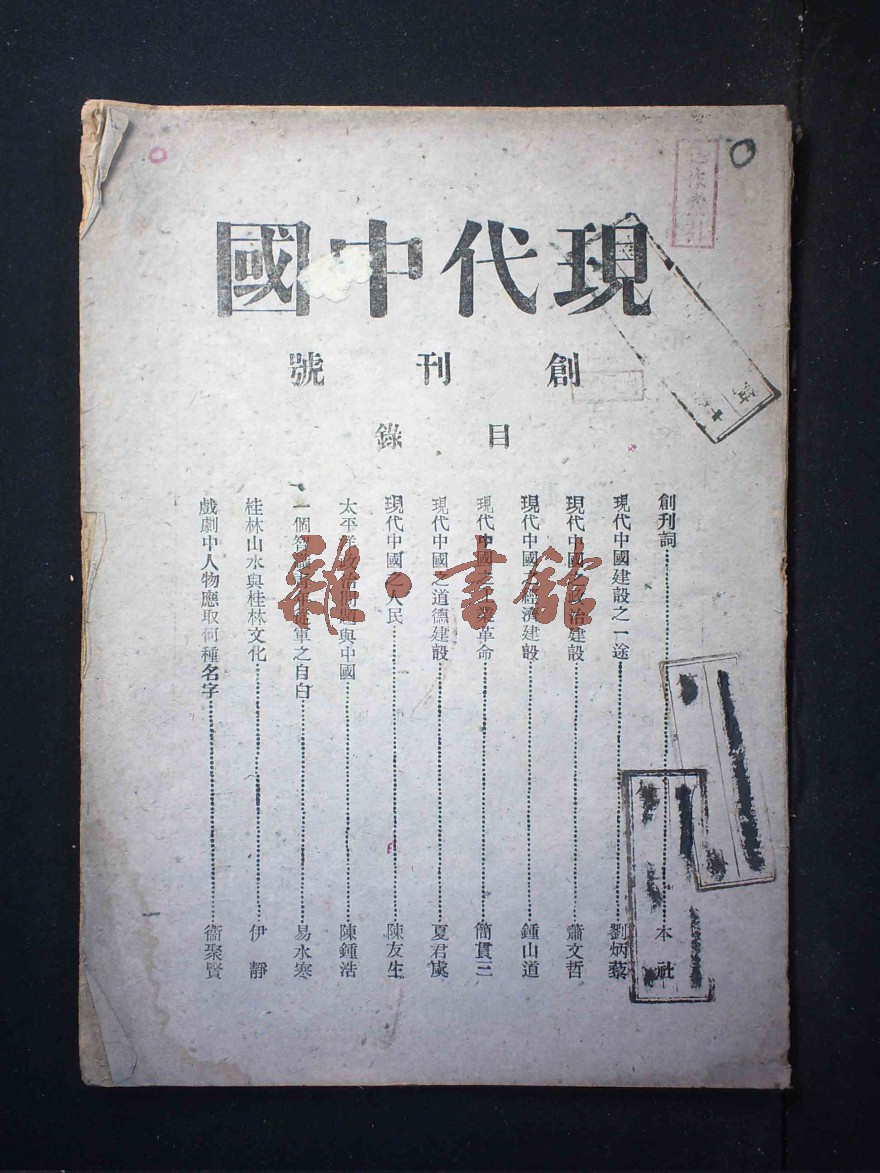 現代中國
創刊號
目錄
創刊詞 本社
現代中國建設之一途 劉炳藜
現代中國之政治建設 蕭文哲
現代中國之經濟建設 鍾山道
現代中國之工業革命 簡貫三
現代中國之道德建設 夏君虞
現代中國之人民 陳友生
太平洋政治問題與中國 陳鍾浩
一個智識青年從軍之自白 易水寒
桂林山水與桂林文化 伊靜
戲劇中人物應取何種名字 衞聚賢
雜·書館